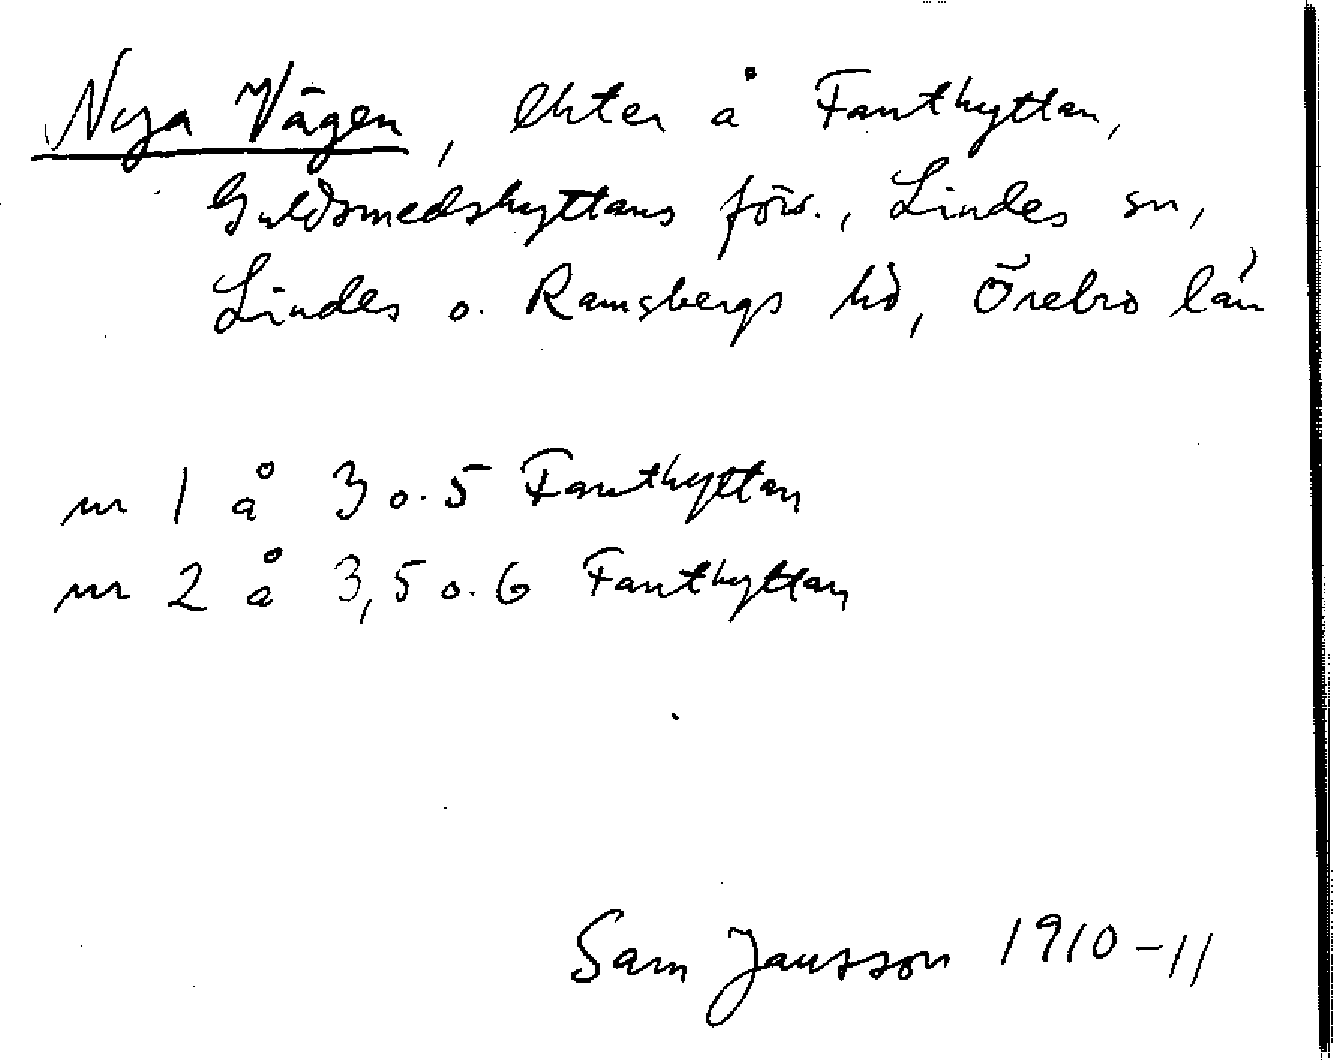 Nya Vägen, lhter å Fanthyttan,
Guldsmedshyttans förs., Lindes sn,
Lindes o. Ramsbergs hd, Örebro län
nr 1 å 3 o. 5 Fanthyttan
nr 2 å 3, 5 o. 6 Fanthyttan
Sam Jansson 1910-11